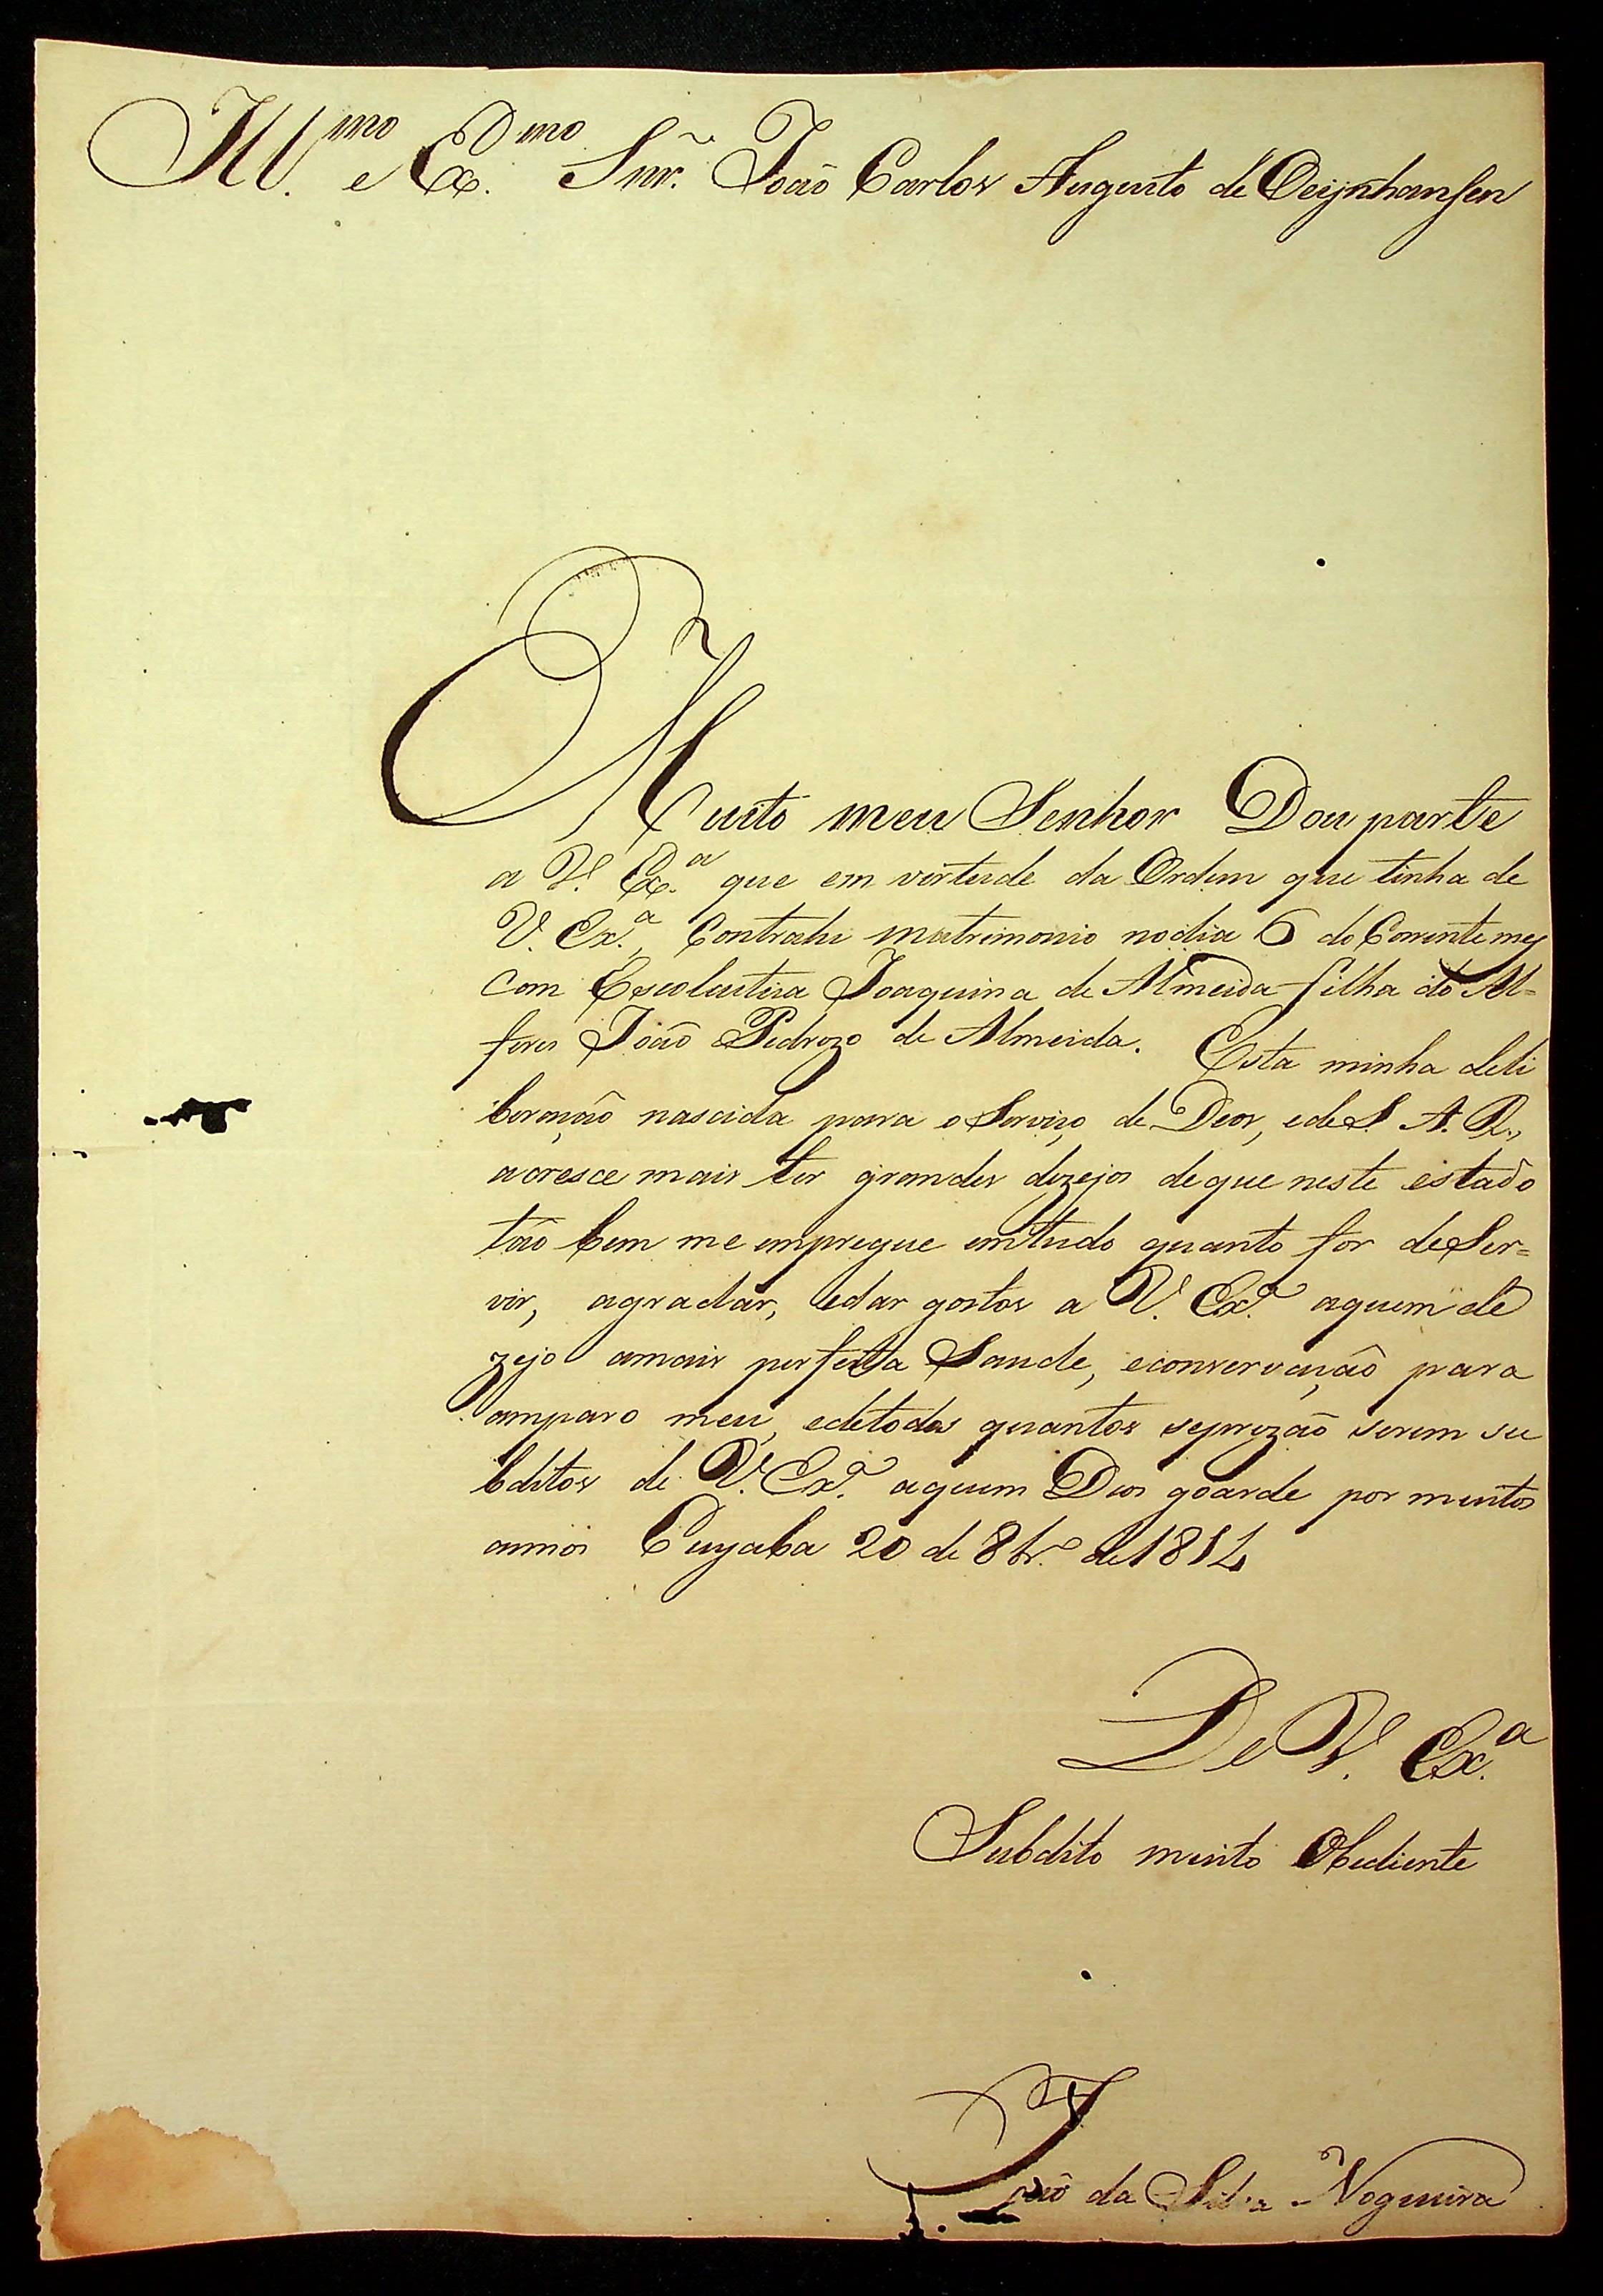 Ill.mo e Ex.mo Snr. João Carlos Augusto de Oeijnhausen
Muito meu Senhor Dou parte
a V. Ex.a que em virtude da Ordem que tinha de
V. Ex.a, Contrahi matrimonio nodia 6 do Corrente mes
com Escolastica Joaquina de Almeida filha do Al=
feres João Pedrozo de Almeida. Esta minha deli
beração nascida para o Serviço de Deos, ede S. A. R.,
acresce mais ter grandes dezejos deque neste estado
tão bem me empregue emtudo quanto for deSer=
vir, agradar, edar gostos a V. Ex.a aquem de
zejo amais perfeita Saude, econservação para
amparo meu, edetodos quantos seprezão serem su
bditos de V. Ex.a aquem Deos goarde por muitos
annos Cuyaba 20 de 8br.o de 1814
De V. Ex.a
Subdito muito Obediente
João da Silva Nogueira